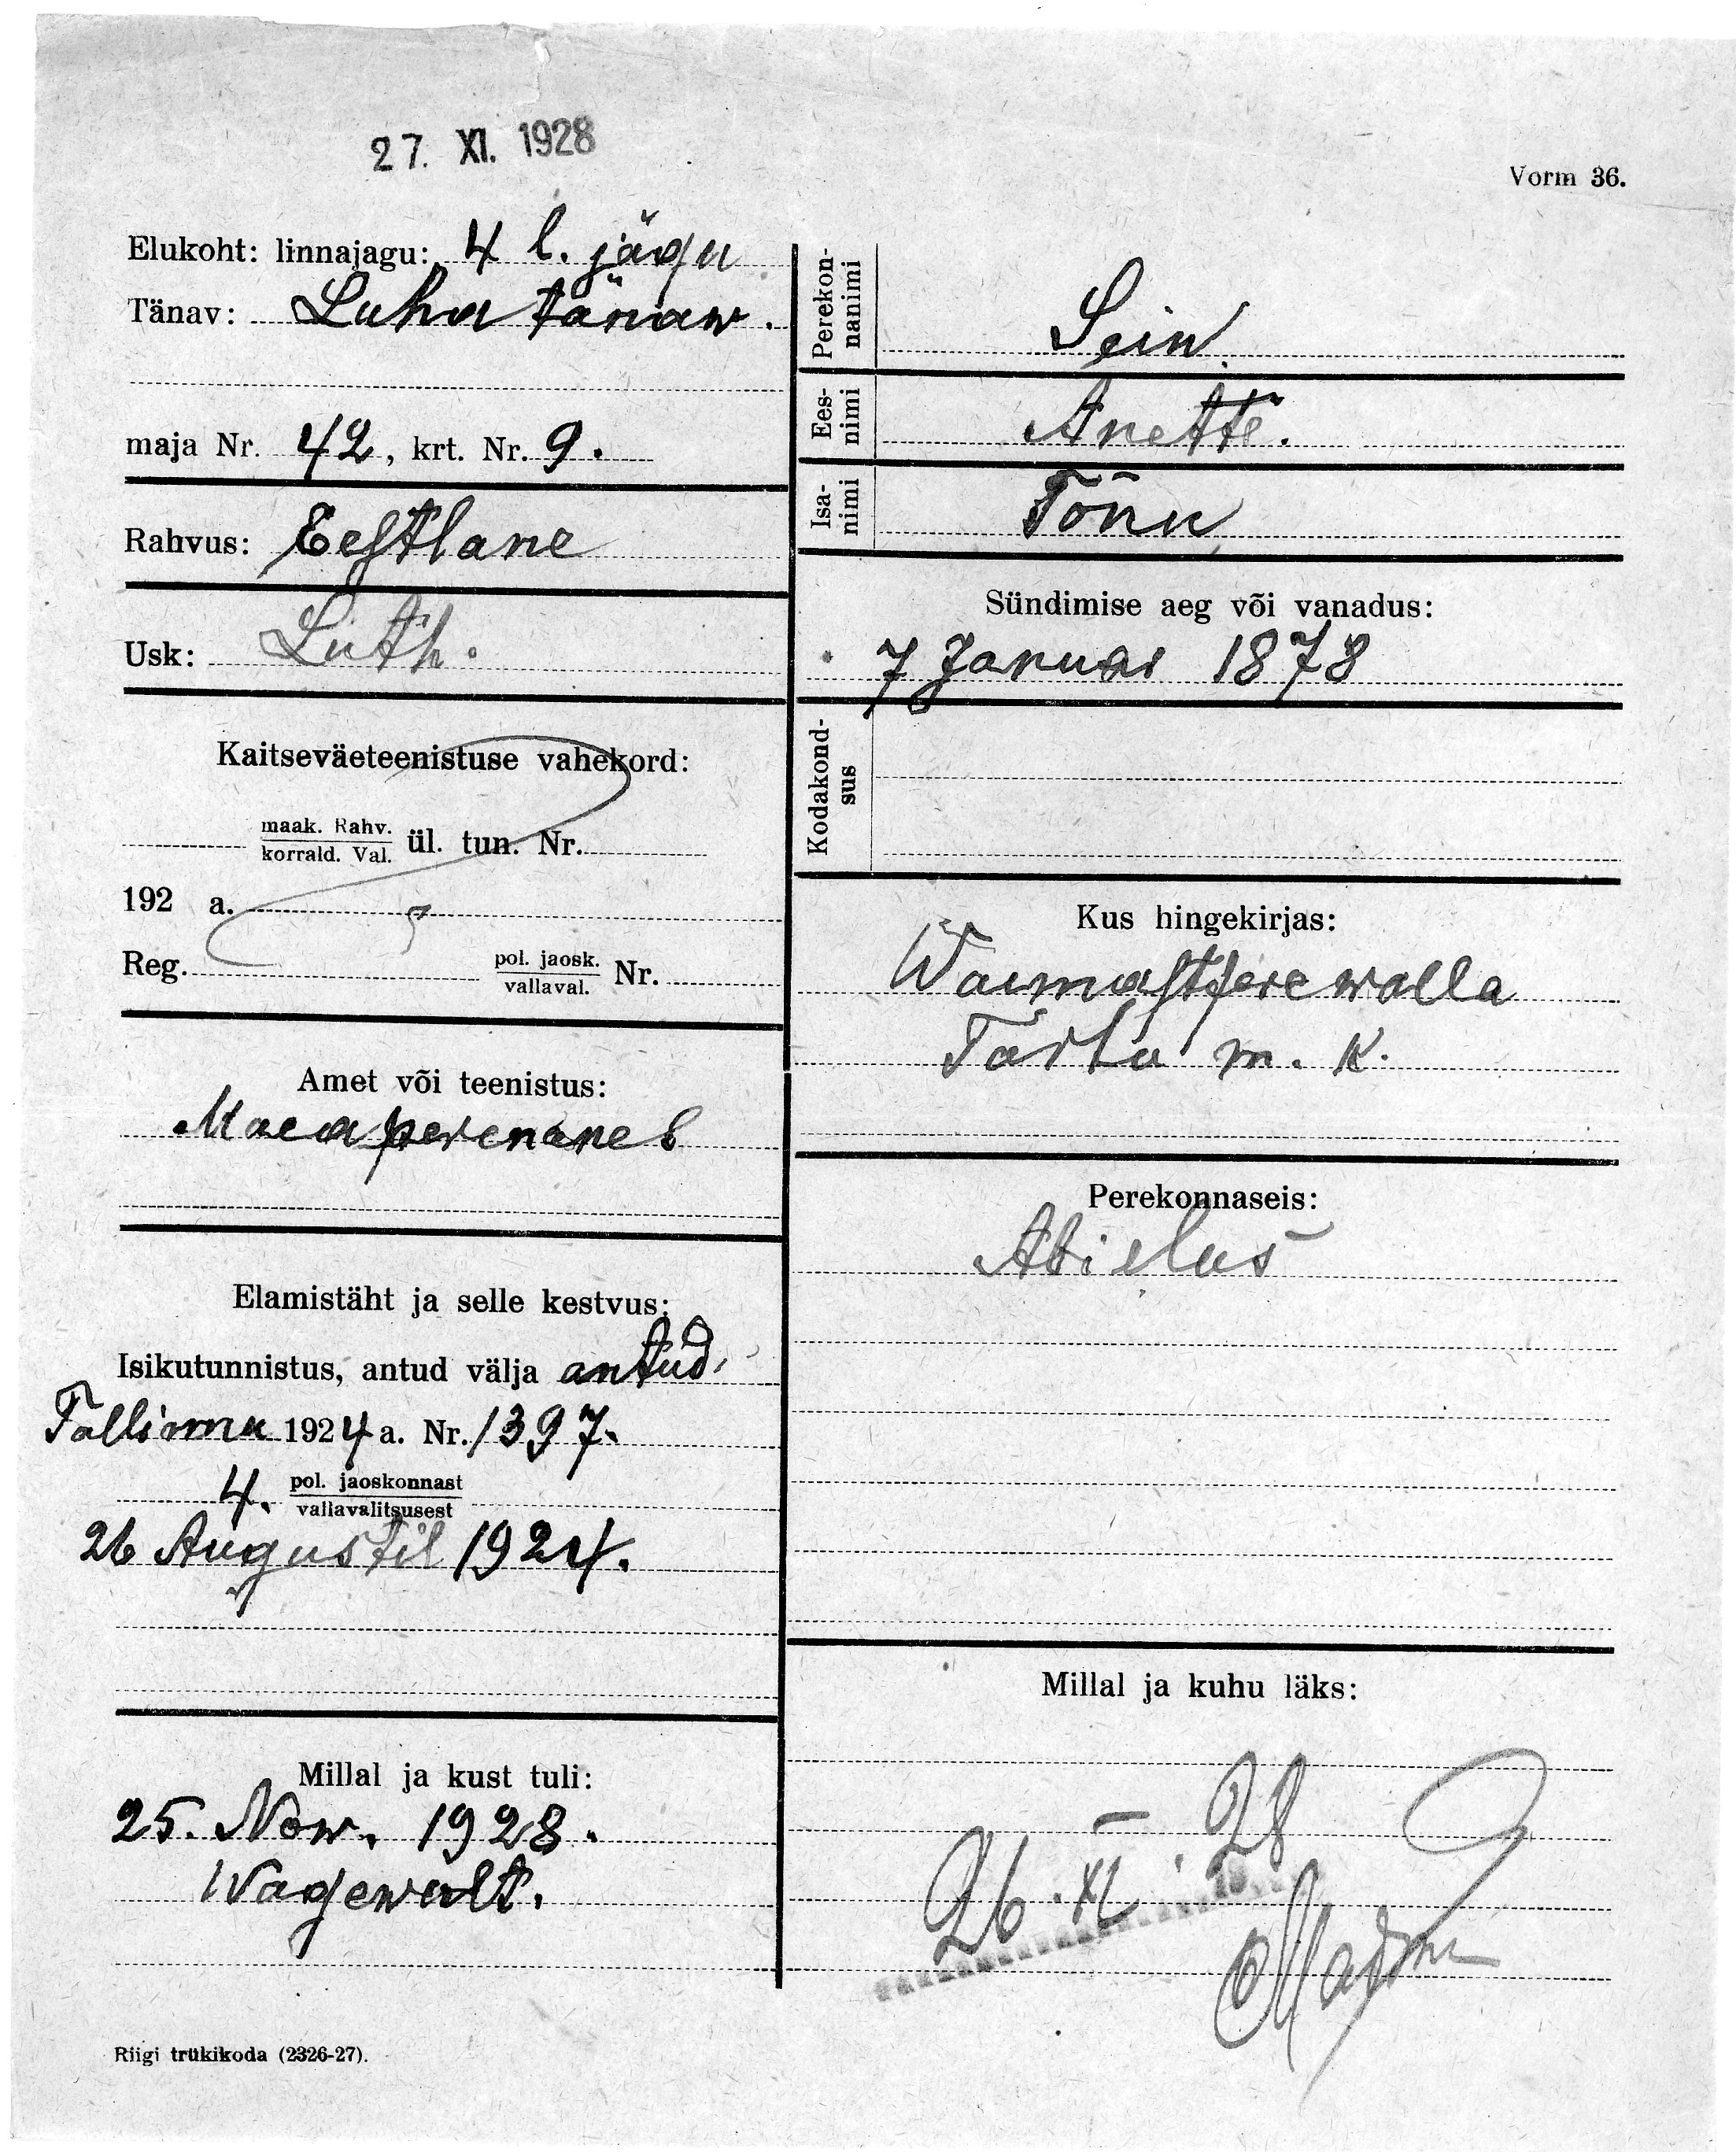 27. XI. 1928
Vorm 36.
Elukoht: linnajagu: 4 l. jägu
Tänav: Luha tänaw.
maja Nr. 42, krt. Nr. 9.
Rahvus: Eestlane
Usk: Luth.
Kaitseväeteenistuse vahekord:
maak. Rahv.
korrald. Val. ül. tun. Nr.
192 a.
Reg. pol. jaosk.
vallaval. Nr.
Amet või teenistus:
Elamistäht ja selle kestvus:
Isikutunnistus, antud välja antud
Tallinna 1924 a. Nr. 1397.
4. pol. jaoskonnast
vallavalitsusest
26 Augustil 1924.
Millal ja kust tuli:
25. Now. 1928.
Riigi trükikoda (2326-27).
Perekon-
nanimi
Sein
Ees-
nimi
Anette.
Isa-
nimi
Tõnu
Sündimise aeg või vanadus:
7 Januar 1878
Kodakond-
sus
Kus hingekirjas:
Waimastfere walla
Tartu m. k.
Perekonnaseis:
Abielus
Millal ja kuhu läks:
26. XI. 28